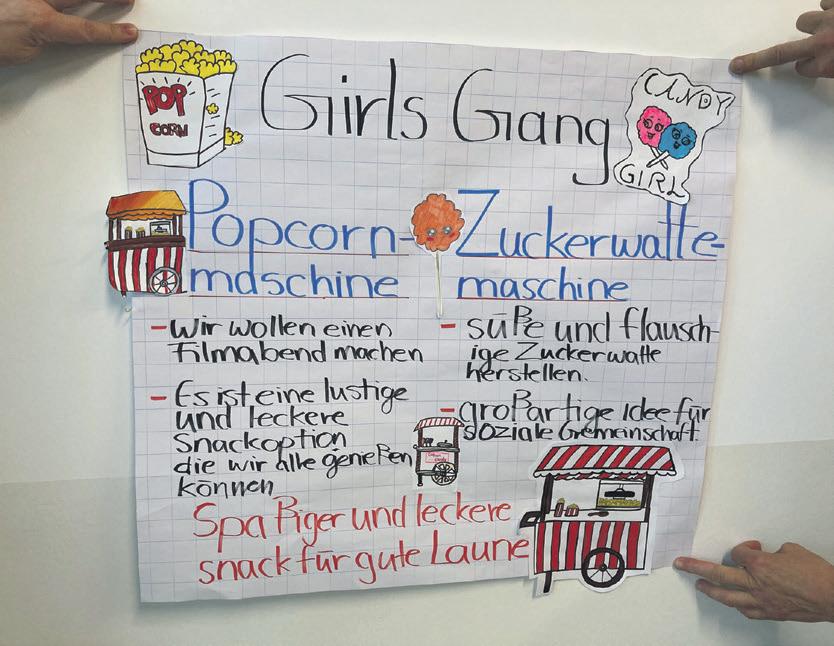 POP
CORN
Girls Gang
CANDY
GIRL
Popcorn-
maschine
Zuckerwatte-
maschine
- Wir wollen einen
Filmabend machen
- Es ist eine lustige
und leckere
Snackoption
die wir alle genießen
können
- süße und flausch-
ige Zuckerwatte
herstellen.
- großartige Idee für
soziale Gemeinschaft.
Spaßiger und leckere
snack für gute Laune